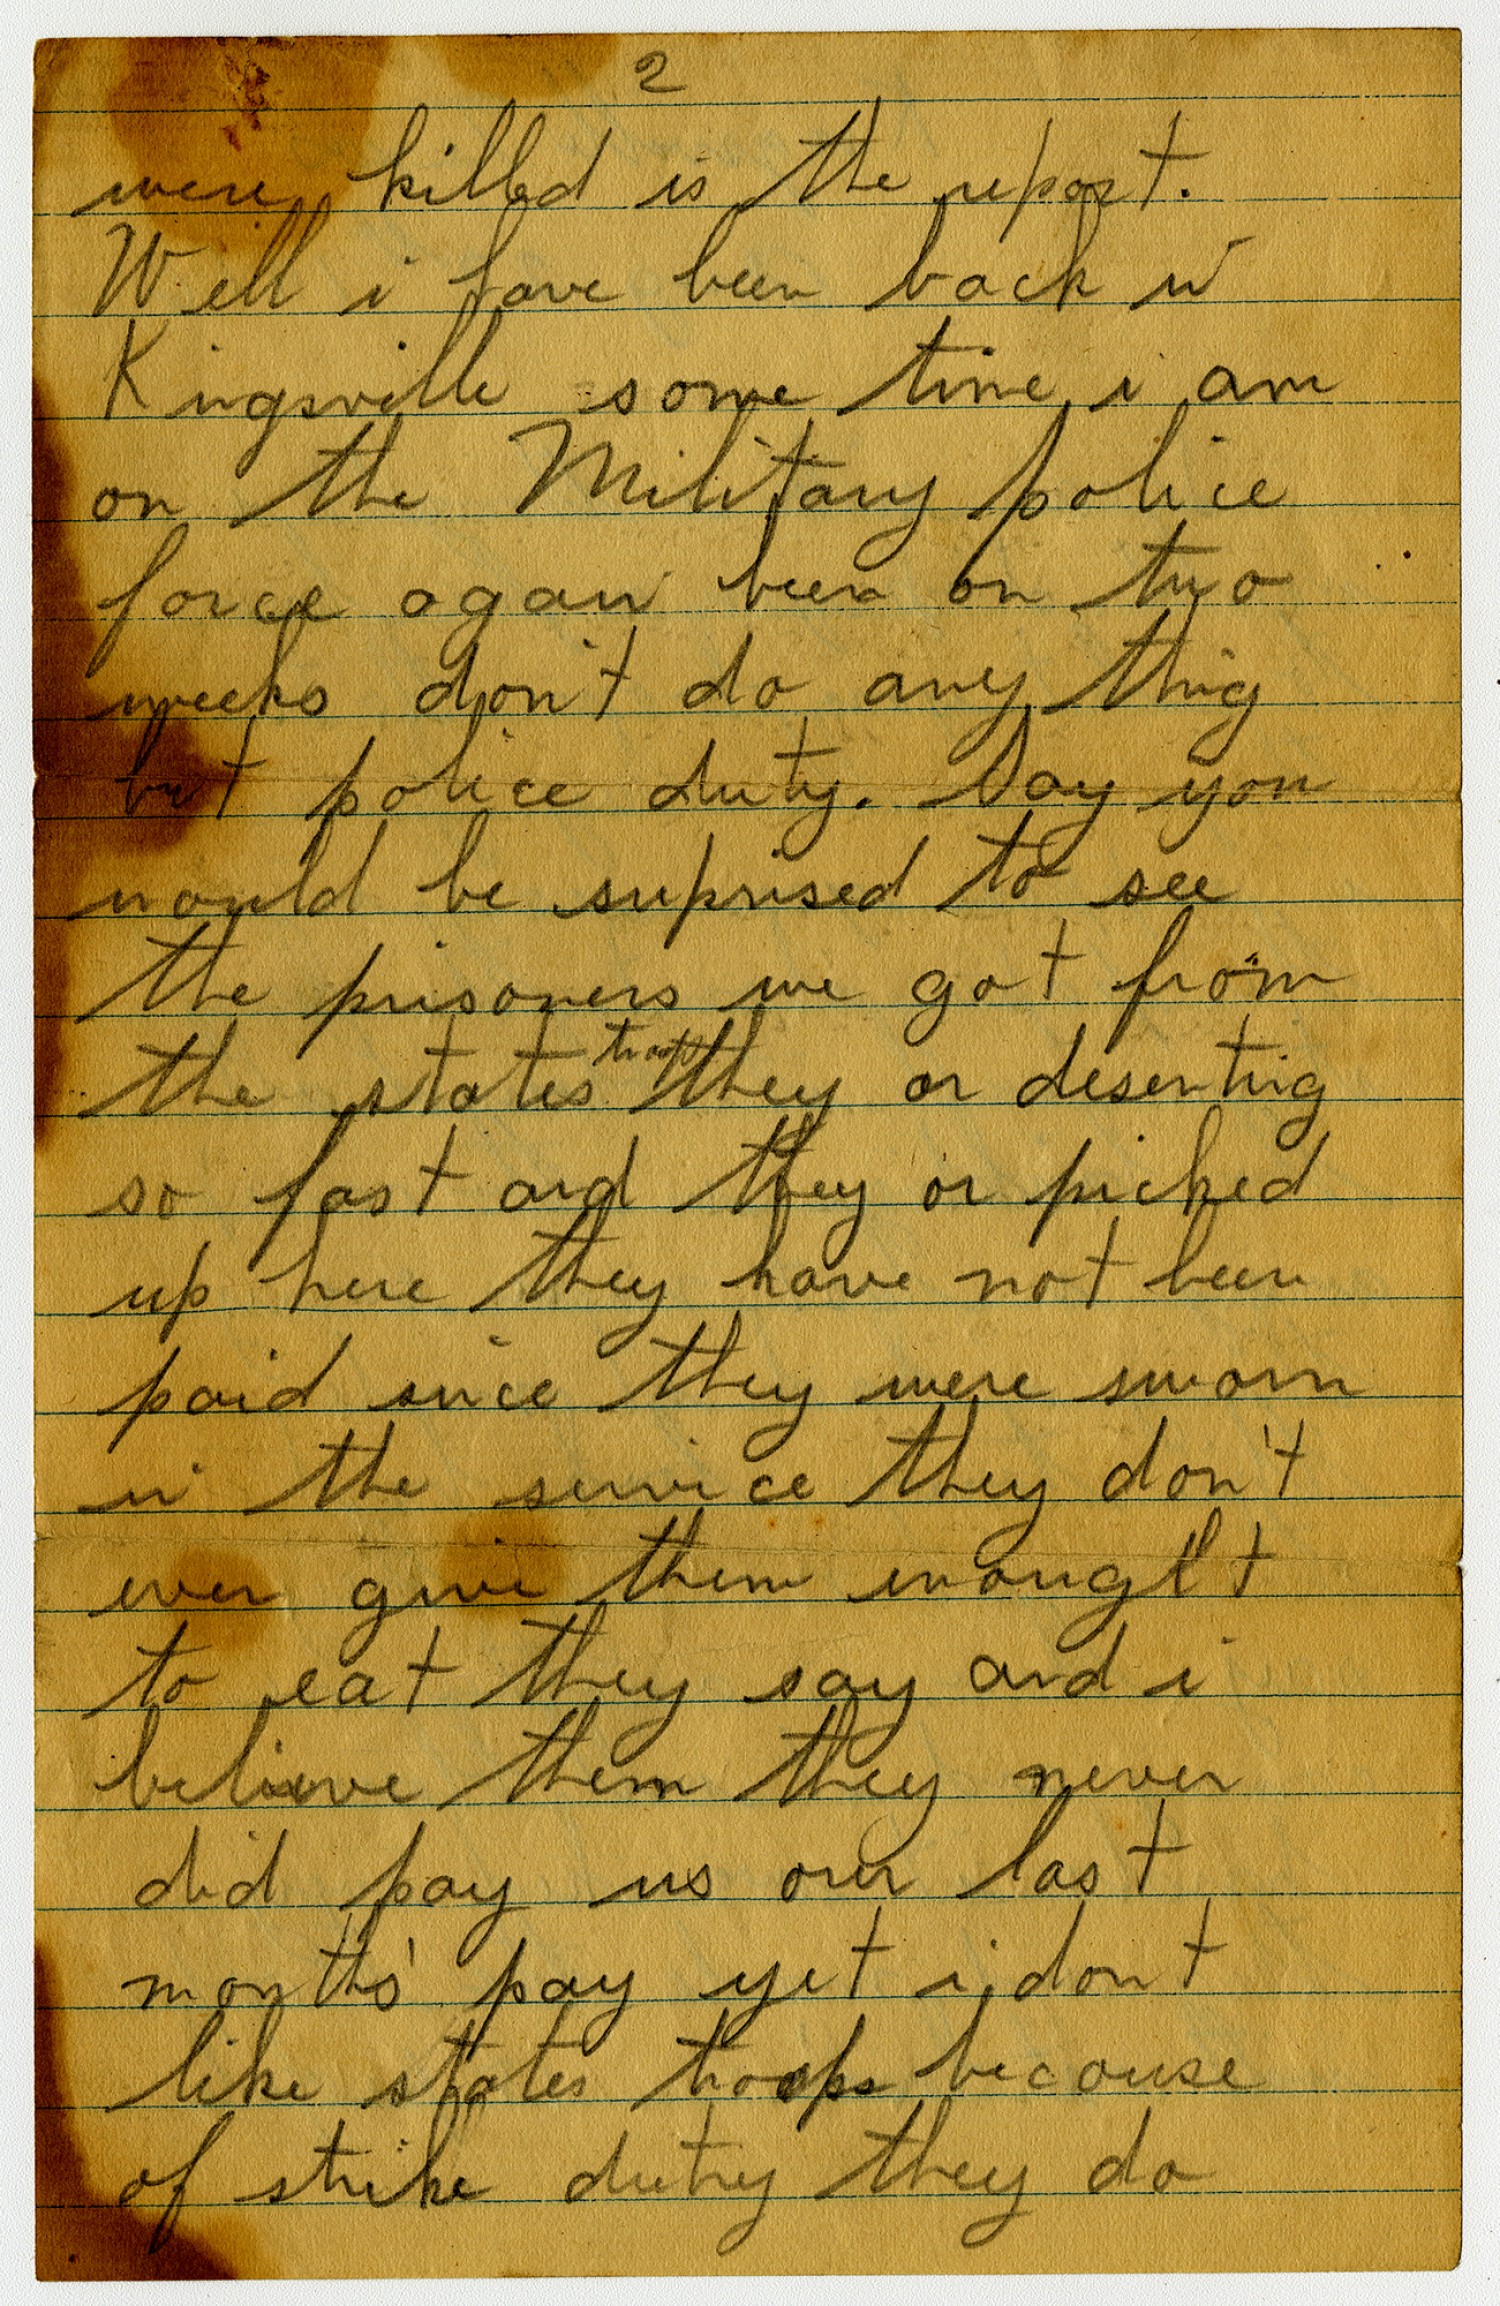 2
were killed is the report.
Well i have been back in
Kingsville some time i am
on the Military police
force again been on two
weeks don't do any thing
but police duty. Say you
would be suprised to see
the prisoners we got from
the states troops they or deserting
so fast and they or picked
up here they have not been
paid since they were sworn
in the service they don't
ever give them enought
to eat they say and i
believe them they never
did pay us our last
months' pay yet i dont
like states troops because
of strike dutry they do